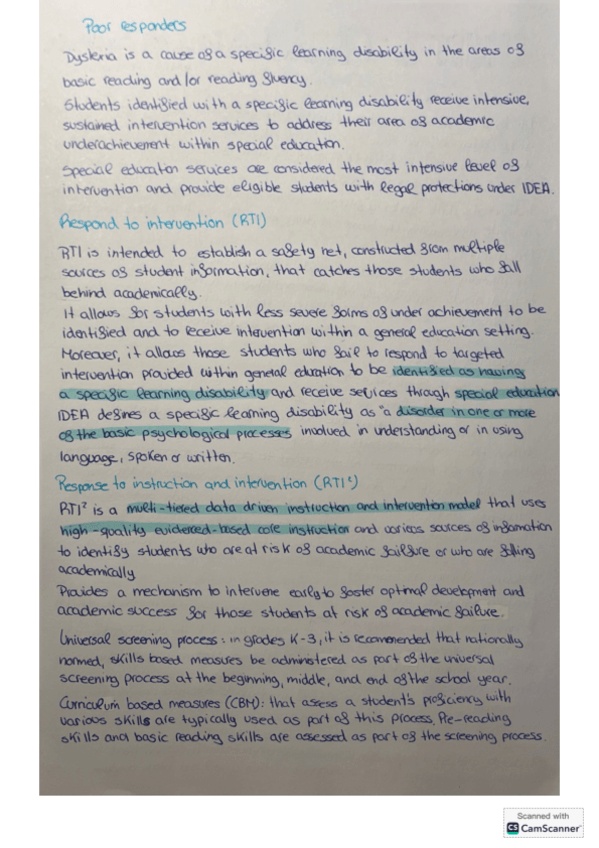 Poor responders
Dyslexia is a cause of a specific learning disability in the areas of
basic reading and/or reading fluency.
Students identified with a specific learning disability receive intensive,
sustained intervention services to address their area of academic
underachievement within special education.
Special education services are considered the most intensive level of
intervention and provide eligible students with legal protections under IDEA.
Respond to intervention (RTI)
RTI is intended to establish a safety net, constructed from multiple
sources of student information, that catches those students who fall
behind academically.
It allows for students with less severe forms of under achievement to be
identified and to receive intervention within a general education setting.
Moreover, it allows those students who fail to respond to targeted
intervention provided within general education to be identified as having
a specific learning disability and receive services through special education
IDEA defines a specific learning disability as "a disorder in one or more
of the basic psychological processes involved in understanding or in using
language, spoken or written.
Response to instruction and intervention (RTI²)
RTI² is a multi-tiered data driven instruction and intervention model that uses
high-quality evidenced-based core instruction and various sources of information
to identify students who are at risk of academic failure or who are falling
academically
Provides a mechanism to intervene early to foster optimal development and
academic success for those students at risk of academic failure.
Universal screening process: in grades K-3, it is recommended that nationally
normed, skills based measures be administered as part of the universal
screening process at the beginning, middle, and end of the school year.
Curriculum based measures (CBM): that assess a student's proficiency with
various skills are typically used as part of this process. Pre-reading
skills and basic reading skills are assessed as part of the screening process.
Scanned with
CS CamScanner